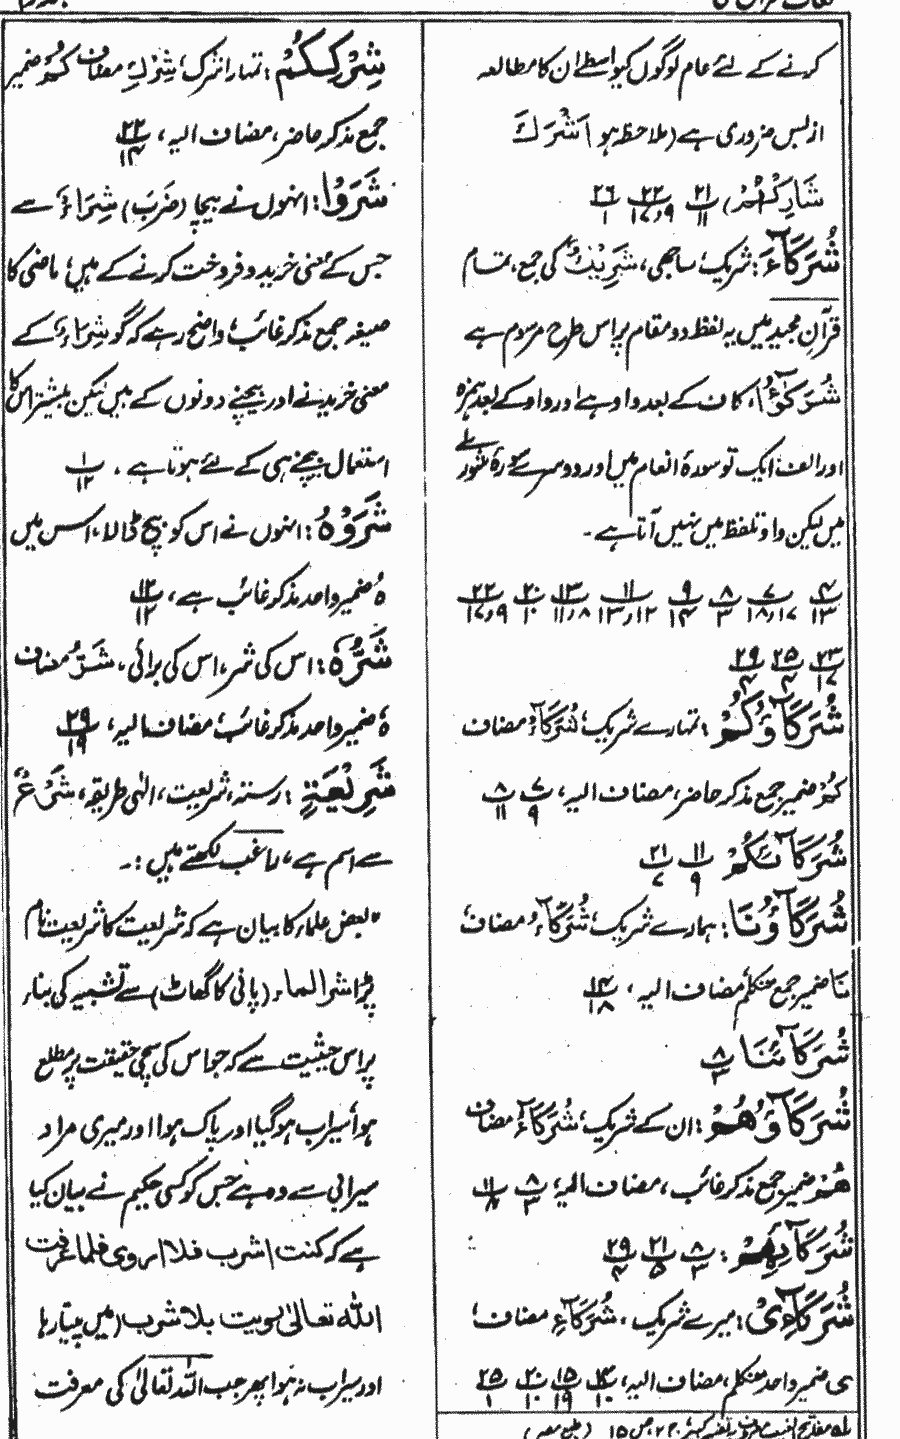 کرنے کے لئے عام لوگوں کیواسطے ان کا مطالعہ
از بس ضروری ہے (ملاحظہ ہو اَشْرَكَ
شَارِكْهُمْ) ٢١/١١ ٢٢/٩،١٧ ٢٦/١
شُرَكَآءَ: شریک، ساجھی، شَرِيْكٌ کی جمع، تمام
قرآن مجید میں یہ لفظ دو مقام پر اس طرح مرسوم ہے
شُرَكٰٓؤُا، کاف کے بعد واو ہے اور واو کے بعد ہمزہ
اور الف، ایک تو سورۂ انعام میں اور دوسرے سورۂ شوریٰ
میں لیکن واو تلفظ میں نہیں آتا ہے۔
٤/١٣ ٧/١٧،١٨ ٨/٣ ٩/١٤ ١١/١٢،١٣ ١٣/٨،١١ ٢٠/١٠ ٢٢/٩،١٧
٢٣/١٧ ٢٥/٤ ٢٩/٤
شُرَكَآؤُكُمْ: تمہارے شریک، شُرَكَآءُ مضاف
كُمْ ضمیر جمع مذکر حاضر، مضاف الیہ، ٧/٩ ٨/١١
شُرَكَآئِكُمْ ١١/٩ ٢١/٧
شُرَكَآؤُنَا: ہمارے شریک، شُرَكَآءُ مضاف
نَا ضمیر جمع متکلم مضاف الیہ، ١٤/١٨
شُرَكَآئِنَا ٨/٣
شُرَكَآؤُهُمْ: ان کے شریک، شُرَكَآءُ مضاف
هُمْ ضمیر جمع مذکر غائب، مضاف الیہ، ٨/٣ ١١/٨
شُرَكَآئِهِمْ: ٨/٣ ٢١/٥ ٢٩/٤
شُرَكَآءِىْ: میرے شریک، شُرَكَآءِ مضاف،
ی ضمیر واحد متکلم، مضاف الیہ، ١٤/١٠ ١٥/١٩ ٢٠/١٠ ٢٥/١
شِرْكِكُمْ: تمہارا شرک، شِرْكِ مضاف كُمْ ضمیر
جمع مذکر حاضر، مضاف الیہ، ٢٢/١٤
شَرَوْا: انہوں نے بیچا (ضَرَبَ) شِرَاءٌ سے
جس کے معنی خرید و فروخت کرنے کے ہیں، ماضی کا
صیغہ جمع مذکر غائب، واضح رہے کہ گو شِرَاءٌ کے
معنی خریدنے اور بیچنے دونوں کے ہیں لیکن بیشتر اس کا
استعمال بیچنے ہی کے لئے ہوتا ہے، ١/١٢
شَرَوْهُ: انہوں نے اس کو بیچ ڈالا، اس میں
هُ ضمیر واحد مذکر غائب ہے، ١٢/١٢
شَرُّهُ: اس کی شر، اس کی برائی، شَرُّ مضاف
هُ ضمیر واحد مذکر غائب، مضاف الیہ، ٢٩/١٩
شَرِيْعَةٍ: رستہ، شریعت، الٰہی طریقہ، شَرْعٌ
سے اسم ہے، راغب لکھتے ہیں:۔
"بعض علماء کا بیان ہے کہ شریعت کا شریعت نام
پڑا شرائع الماء (پانی کا گھاٹ) سے تشبیہ کی بناء
پر اس حیثیت سے کہ جو اس کی سچی حقیقت پر مطلع
ہوا، سیراب ہوگیا اور پاک ہوا اور میری مراد
سیرابی سے وہ ہے جس کو کسی حکیم نے بیان کیا
ہے کہ کنت اشرب فلا اروی فلما عرفت
الله تعالیٰ رویت بلا شرب (میں پیتا رہا
اور سیراب نہ ہوا پھر جب اللہ تعالیٰ کی معرفت